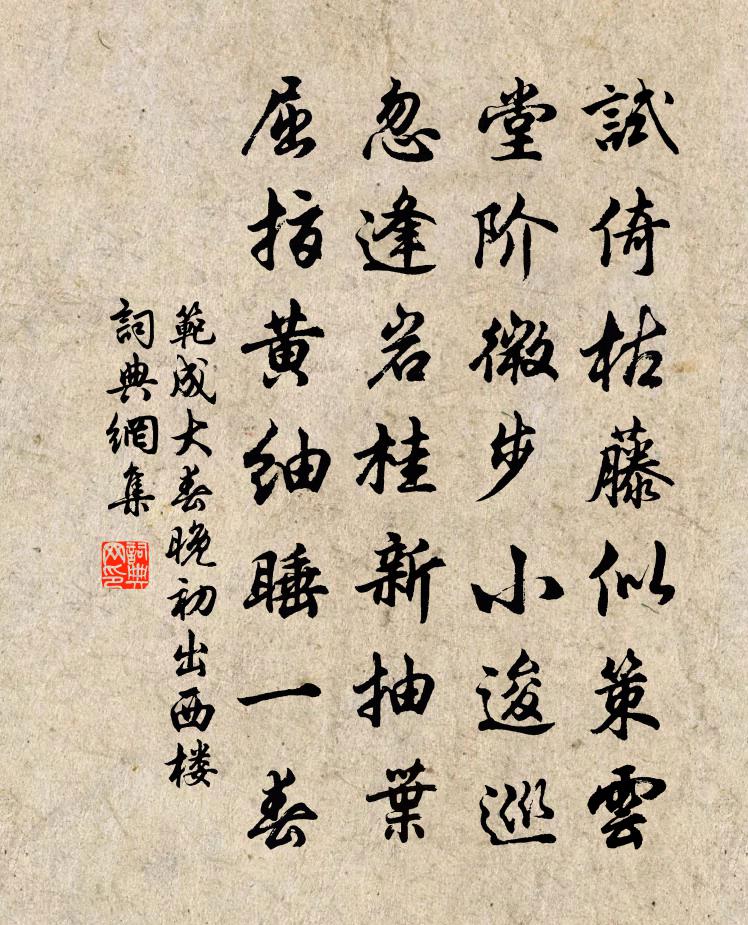 試倚枯藤似策雲
堂阶微步小逡巡
忽逢岩桂新抽葉
屈指黄紬睡一春
範成大春晚初出西楼
詞典網集
詞典网印